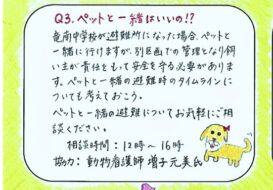 Q3.ペットと一緒はいいの!?
竜南中学校が避難所になった場合、ペットと
一緒に行けますが、別区画での管理となり飼
い主が責任をもって安全を守る必要がありま
す。ペットと一緒の避難時のタイムラインに
ついても考えておこう。
ペットとの避難についてお気軽にご相
談ください。
相談時間:12時〜16時
協力:動物看護師 増子元美氏